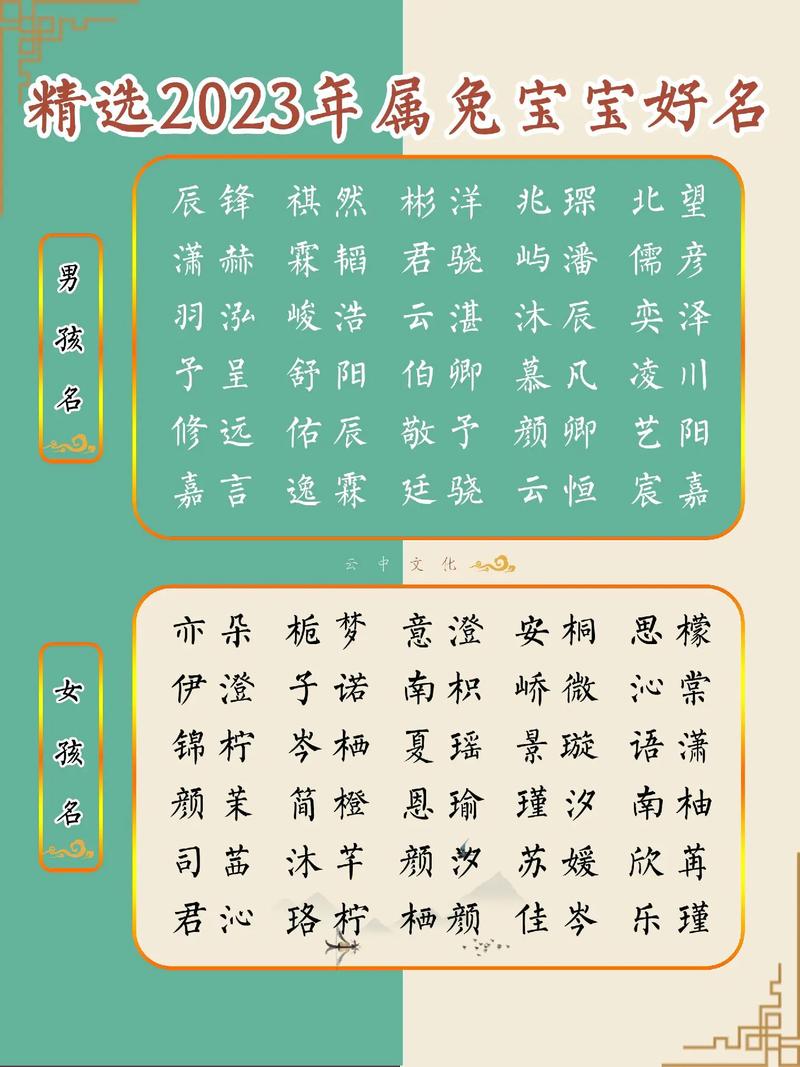 精选2023年属兔宝宝好名
男孩名
辰锋 祺然 彬洋 兆琛 北望
潇赫 霖韬 君骁 屿潘 儒彦
羽泓 峻浩 云湛 沐辰 奕泽
予呈 舒阳 伯卿 慕凡 凌川
修远 佑辰 敬予 颜卿 艺阳
嘉言 逸霖 廷骁 云恒 宸嘉
云中文化
女孩名
亦朵 栀梦 意澄 安桐 思檬
伊澄 子诺 南枳 峤微 沁棠
锦柠 岑栖 夏瑶 景璇 语潇
颜茉 简橙 恩瑜 瑾汐 南柚
司茜 沐芊 颜汐 苏媛 欣苒
君沁 珞柠 栖颜 佳岑 乐瑾